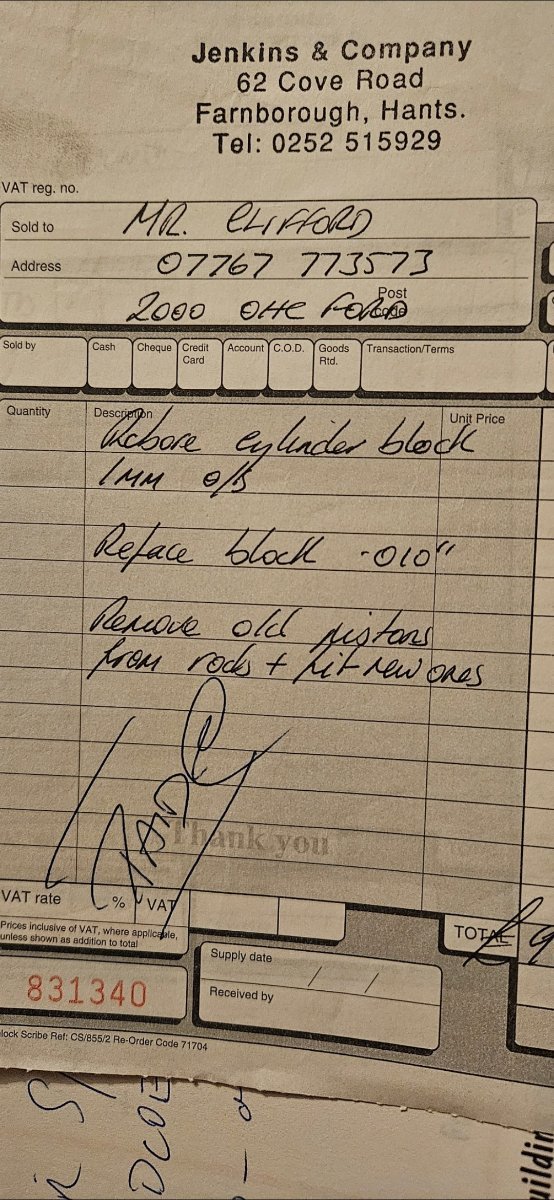 Jenkins & Company
62 Cove Road
Farnborough, Hants.
Tel: 0252 515929
VAT reg. no.
Sold to MR. CLIFFORD
Address 07767 773573
2000 OHC FORD Post code
Sold by Cash Cheque Credit Card Account C.O.D. Goods Rtd. Transaction/Terms
Quantity Description Unit Price
Rebore cylinder block
1MM O/S
Reface block .010"
Remove old pistons
from rods + fit new ones
Thank you
VAT rate % VAT
Prices inclusive of VAT, where applicable,
unless shown as addition to total
TOTAL £9
831340
Supply date / /
Received by
Ref: CS/855/2 Re-Order Code 71704